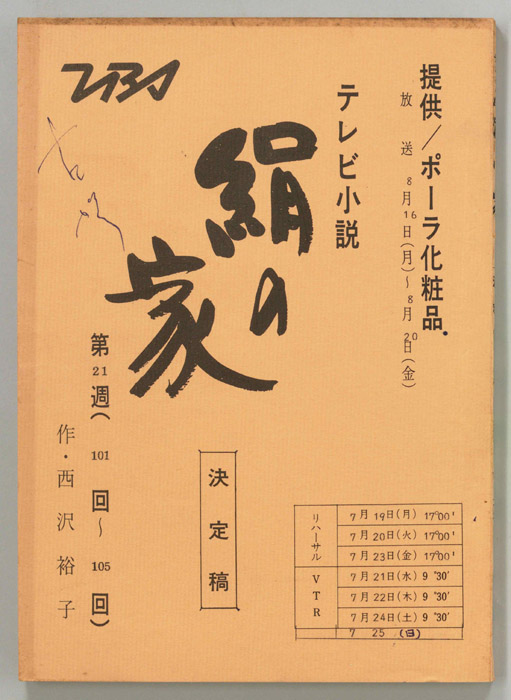 提供/ポーラ化粧品.
放送 8月16日(月)~8月20日(金)
テレビ小説
TBS
絹の家
第21週(101回~105回)
作・西沢裕子
決定稿
リハーサル
7月19日(月) 17°00'
7月20日(火) 17°00'
7月23日(金) 17°00'
VTR
7月21日(水) 9°30'
7月22日(木) 9°30'
7月24日(土) 9°30'
7 25 (日)